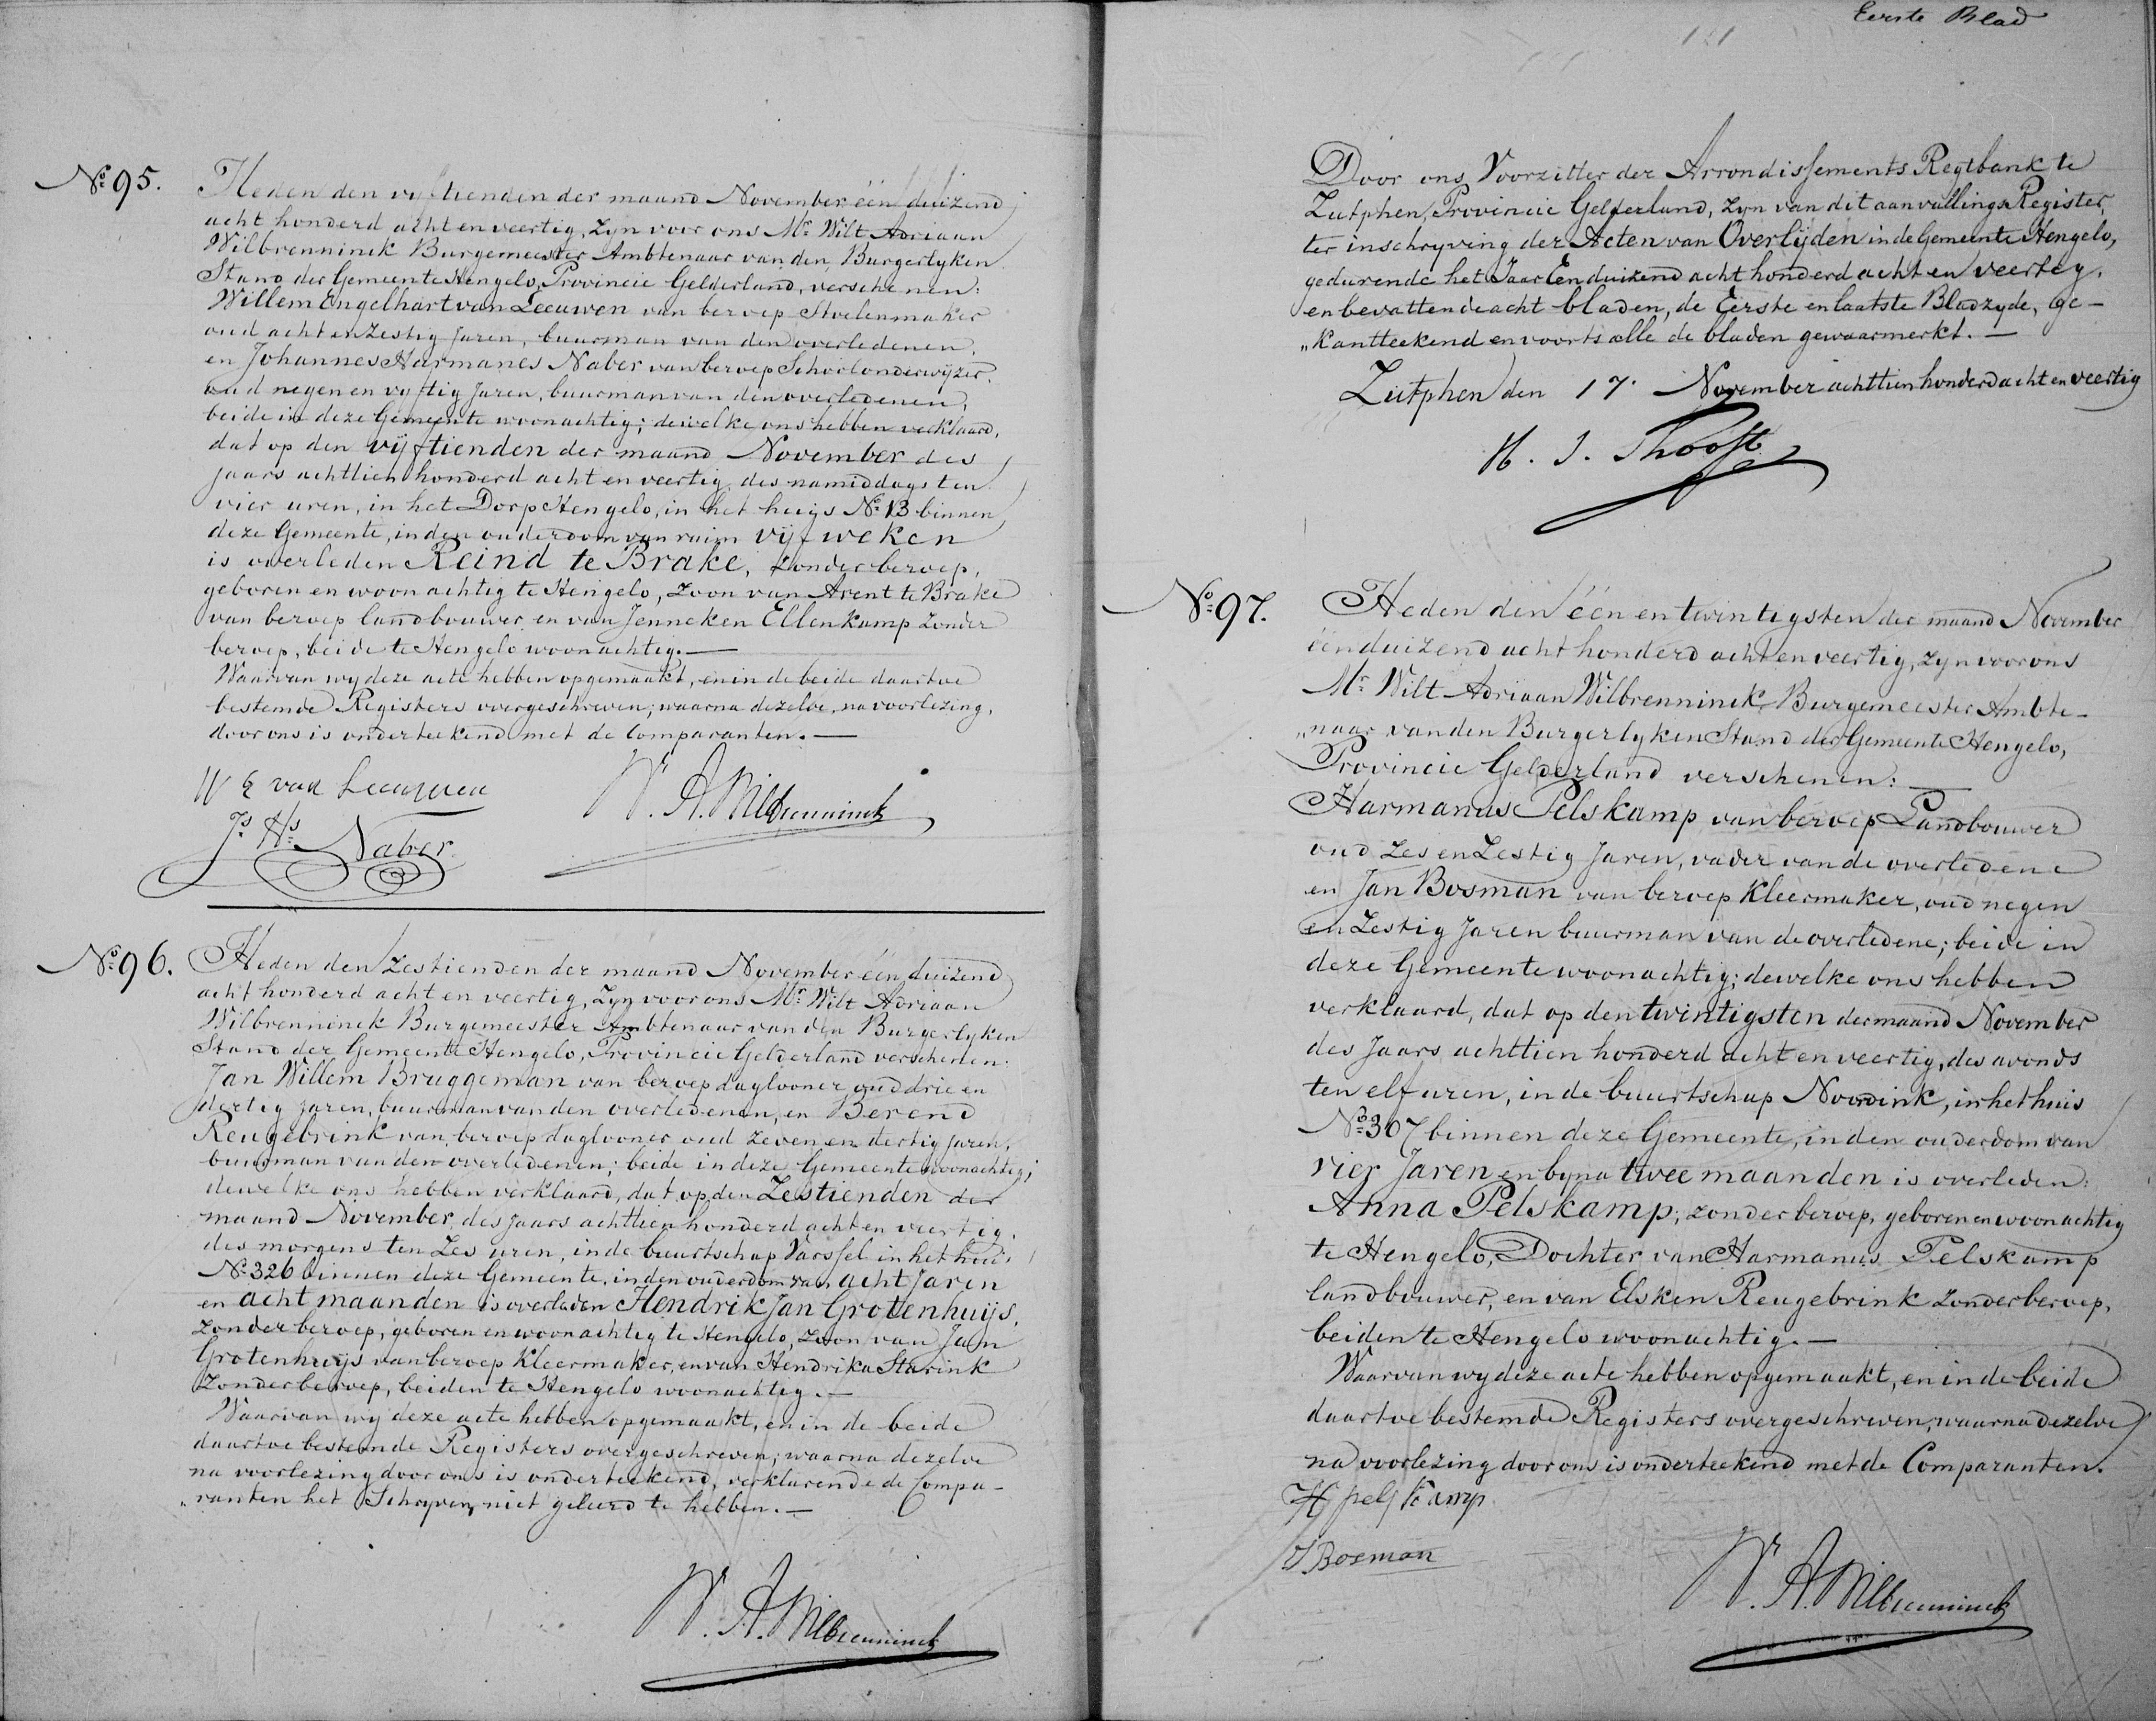 No. 95.
Heden den vijftienden der maand November één duizend
acht honderd acht en veertig, zyn voor ons Mr. Wilt Adriaan
Wilbrenninck Burgemeester Ambtenaar van den Burgerlyken
Stand der Gemeente Hengelo, Provincie Gelderland, verschenen:
Willem Engelhart van Leeuwen van beroep Stoelenmaker
oud acht en zestig Jaren, buurman van den overledenen,
en Johannes Harmanes Naber van beroep Schoolonderwijzer,
oud negen en vyftig Jaren, buurman van den overledenen,
beide in deze Gemeente woonachtig; dewelke ons hebben verklaard,
dat op den vijftienden der maand November des
jaars achttien honderd acht en veertig, des namiddags ten
vier uren, in het Dorp Hengelo, in het huijs No. 13 binnen
deze Gemeente, in den ouderdom van ruim vijf weken
is overleden Reind te Brake, zonder beroep,
geboren en woonachtig te Hengelo, zoon van Arent te Brake
van beroep landbouwer en van Jenneken Ellenkamp zonder
beroep, beide te Hengelo woonachtig. —
Waarvan wy deze acte hebben opgemaakt, en in de beide daartoe
bestemde Registers overgeschreven; waarna dezelve, na voorlezing,
door ons is onderteekend met de Comparanten. —
W E van Leeuwen
W. A. Wilbrenninck
Js. Hs. Naber
No. 96.
Heden den Zestienden der maand November één duizend
acht honderd acht en veertig, zyn voor ons Mr. Wilt Adriaan
Wilbrenninck Burgemeester Ambtenaar van den Burgerlyken
Stand der Gemeente Hengelo, Provincie Gelderland verschenen:
Jan Willem Bruggeman van beroep daglooner oud drie en
dertig jaren, buurman van den overledenen, en Berend
Reugebrink van beroep daglooner oud zeven en dertig jaren,
buurman van den overledenen; beide in deze Gemeente woonachtig;
dewelke ons hebben verklaard, dat op den Zestienden der
maand November des jaars achttien honderd acht en veertig,
des morgens ten Zes uren, in de buurtschap Varssel in het huis
No. 326 binnen deze Gemeente, in den ouderdom van acht Jaren
en acht maanden is overleden Hendrik Jan Grotenhuijs,
zonder beroep, geboren en woonachtig te Hengelo, zoon van Jan
Grotenhuijs van beroep Kleermaker, en van Hendrika Starink
zonder beroep, beiden te Hengelo woonachtig. —
Waarvan wy deze acte hebben opgemaakt, en in de beide
daartoe bestemde Registers overgeschreven; waarna dezelve
na voorlezing door ons is onderteekend, verklarende de Compa-
"ranten het Schryven niet geleerd te hebben. —
W. A. Wilbrenninck
Eerste Blad
Door ons Voorzitter der Arrondissements Regtbank te
Zutphen, Provincie Gelderland, zyn van dit aanvullings Register,
ter inschryving der Acten van Overlijden in de Gemeente Hengelo,
gedurende het Jaar Een duizend acht honderd acht en veertig,
en bevattende acht bladen, de Eerste en laatste Bladzyde, ge-
"kantteekend en voorts alle de bladen gewaarmerkt. —
Zutphen den 17 November achttien honderd acht en veertig
No. 97.
Heden den één en twintigsten der maand November
één duizend acht honderd acht en veertig, zyn voor ons
Mr. Wilt Adriaan Wilbrenninck Burgemeester Ambte-
"naar van den Burgerlyken Stand der Gemeente Hengelo,
Provincie Gelderland verschenen: —
Harmanus Pelskamp van beroep Landbouwer
oud zes en Zestig Jaren, vader van de overledene
en Jan Bosman van beroep Kleermaker, oud negen
en Zestig Jaren buurman van de overledene; beide in
deze Gemeente woonachtig; dewelke ons hebben
verklaard, dat op den twintigsten der maand November
des Jaars achttien honderd acht en veertig, des avonds
ten elf uren, in de buurtschap Noordink, in het huis
No. 307 binnen deze Gemeente, in den ouderdom van
vier Jaren en byna twee maanden is overleden:
Anna Pelskamp; zonder beroep, geboren en woonachtig
te Hengelo, Dochter van Harmanus Pelskamp
landbouwer, en van Elsken Reugebrink zonder beroep,
beiden te Hengelo woonachtig. —
Waarvan wy deze acte hebben opgemaakt, en in de beide
daartoe bestemde Registers overgeschreven; waarna dezelve
na voorlezing door ons is onderteekend met de Comparanten.
H pelskamp
J Bosman
W. A. Wilbrenninck